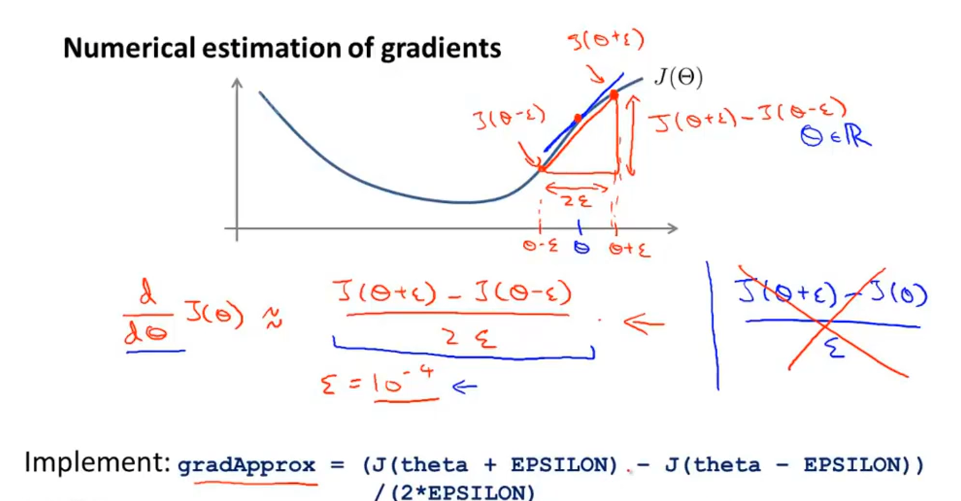 Numerical estimation of gradients
J(θ+ε)
J(Θ)
J(θ-ε)
J(θ+ε) - J(θ-ε)
θ ∈ ℝ
2ε
θ-ε θ θ+ε
d/dθ J(θ) ≈ J(θ+ε) - J(θ-ε) / 2ε
J(θ+ε) - J(θ) / ε
ε = 10⁻⁴
Implement: gradApprox = (J(theta + EPSILON) - J(theta - EPSILON))
/(2*EPSILON)